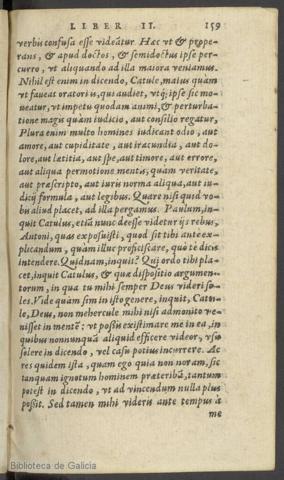 LIBER II. 159
verbis confusa esse videātur. Hac vt & prope-
rans, & apud doctos, & semidoctus ipse per-
curro, vt aliquando ad illa maiora veniamus.
Nihil est enim in dicendo, Catule, maius quàm
vt faueat oratori is, qui audiet, vtq́; ipse sic mo-
ueatur, vt impetu quodam animi, & perturba-
tione magis quàm iudicio, aut consilio regatur,
Plura enim multo homines iudicant odio, aut
amore, aut cupiditate, aut iracundia, aut do-
lore, aut lætitia, aut spe, aut timore, aut errore,
aut aliqua permotione mentis, quam veritate,
aut præscripto, aut iuris norma aliqua, aut iu-
dicij formula, aut legibus. Quare nisi quid vo-
bis aliud placet, ad illa pergamus. Paulum, in-
quit Catulus, etiā nunc deesse videtur ijs rebus,
Antoni, quas exposuisti, quod sit tibi ante ex-
plicandum, quàm illuc proficiscare, quò te dicis
intendere. Quidnam, inquit? Qui ordo tibi pla-
cet, inquit Catulus, & quæ dispositio argumen-
torum, in qua tu mihi semper Deus videri so-
les. Vide quàm sim in isto genere, inquit, Catu-
le, Deus, non mehercule mihi nisi admonito ve-
nisset in mentē: vt possis existimare me in ea, in
quibus nonnunquā aliquid efficere videor, vsu
solere in dicendo, vel casu potius incurrere. Ac
res quidem ista, quam ego quia non noram, sic
tanquam ignotum hominem præteribā, tantum
potest in dicendo, vt ad vincendum nulla plus
possit. Sed tamen mihi videris ante tempus à
me
Biblioteca de Galicia